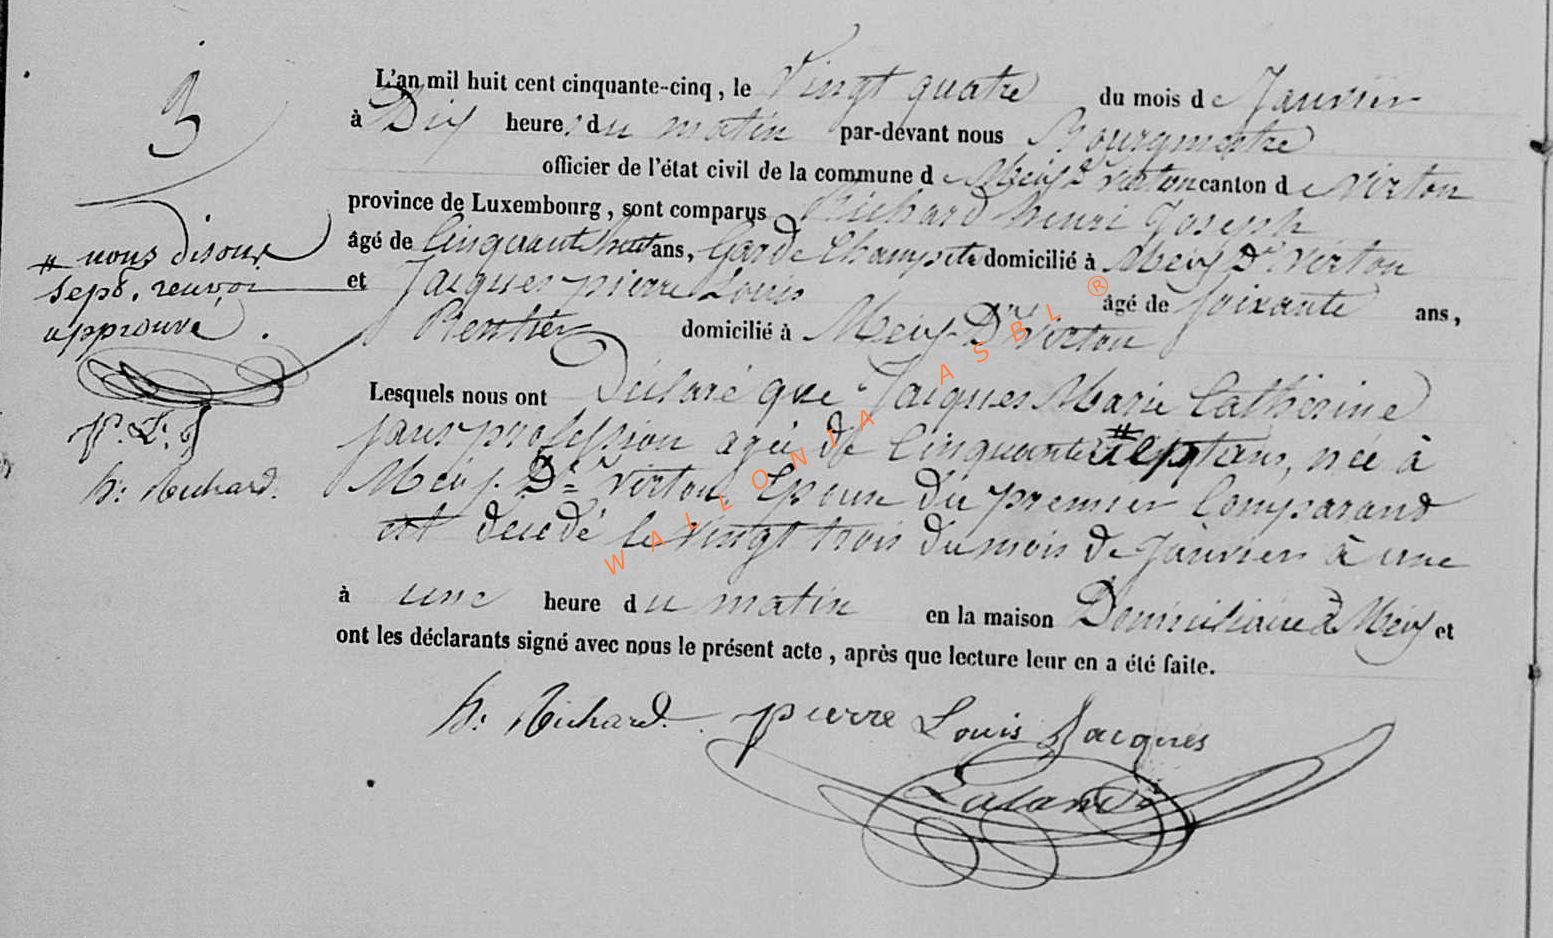 3
L'an mil huit cent cinquante-cinq, le Vingt quatre du mois de Janvier
à Dix heures du matin par-devant nous Bourgmestre
officier de l'état civil de la commune de Meix Dt Virton canton de Virton
province de Luxembourg, sont comparus Richard henri Joseph
âgé de Cinquant huit ans, Garde Champetre domicilié à Meix Dt Virton
et Jacques pierre Louis âgé de soixante ans,
Rentier domicilié à Meix-Dt Virton
Lesquels nous ont Déclaré que Jacques Marie Catherine
sans profession agée de Cinquante # sept ans, née à
Meix-Dt Virton, Epouse du premier Comparant
est décédé le vingt trois du mois de Janvier à une
à une heure du matin en la maison Domiciliaire à Meix et
ont les déclarants signé avec nous le présent acte, après que lecture leur en a été faite.
h: Richard. pierre Louis Jacques
# nous disons
sept. renvoi
approuvé.
p. L. J
h: Richard.
WALLONIA ASBL ®